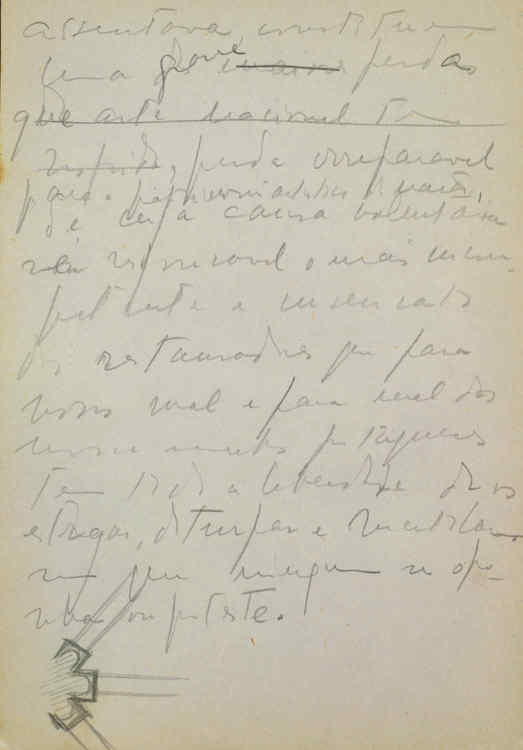 assentava, constituem
uma grave perdas
que arte nacional tem
, perda irreparavel
para o patrimonio artistico da nação,
de cuja causa voluntaria
o mais incom-
petente e insensato
dos restauradores que para
nosso mal e para mal dos
monumentos portugueses
tem tido a liberdade de os
estragar, deturpar e mutilar
sem que ninguem se opo-
nha ou proteste.